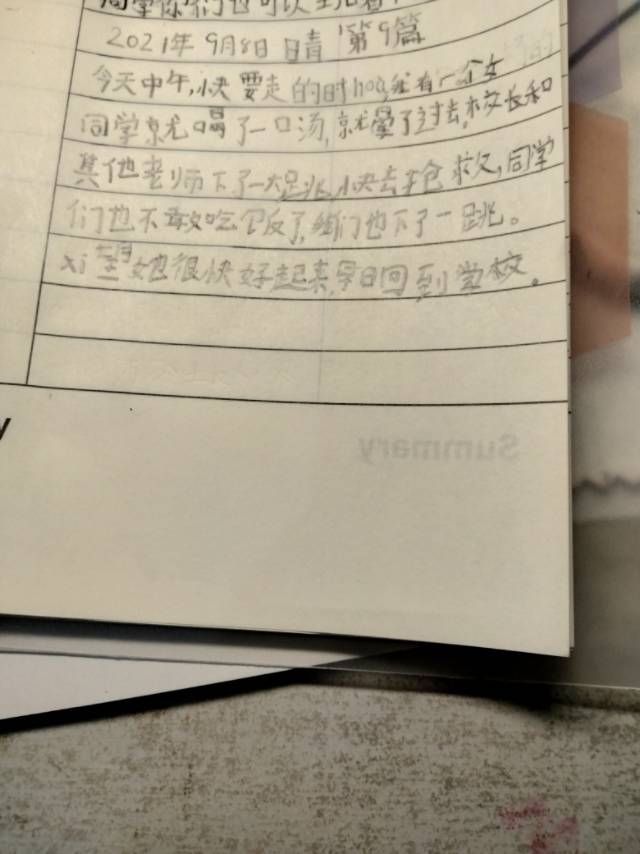 同学你们也可以
2021年9月8日 晴 第9篇
今天中午,快要走的时hou,有一个女
同学就喝了一口汤,就晕了过去,校长和
其他老师下了一大跳,快去抢救,同学
们也不敢吃饭了,们也下了一跳。
xi望她很快好起来,早日回到学校。
Summary